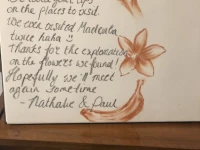 on the places to visit.
We even visited
twice haha
Thanks for the explanation
on the flowers we found!
Hopefully we'll meet
again sometime
- Nathalie & Paul